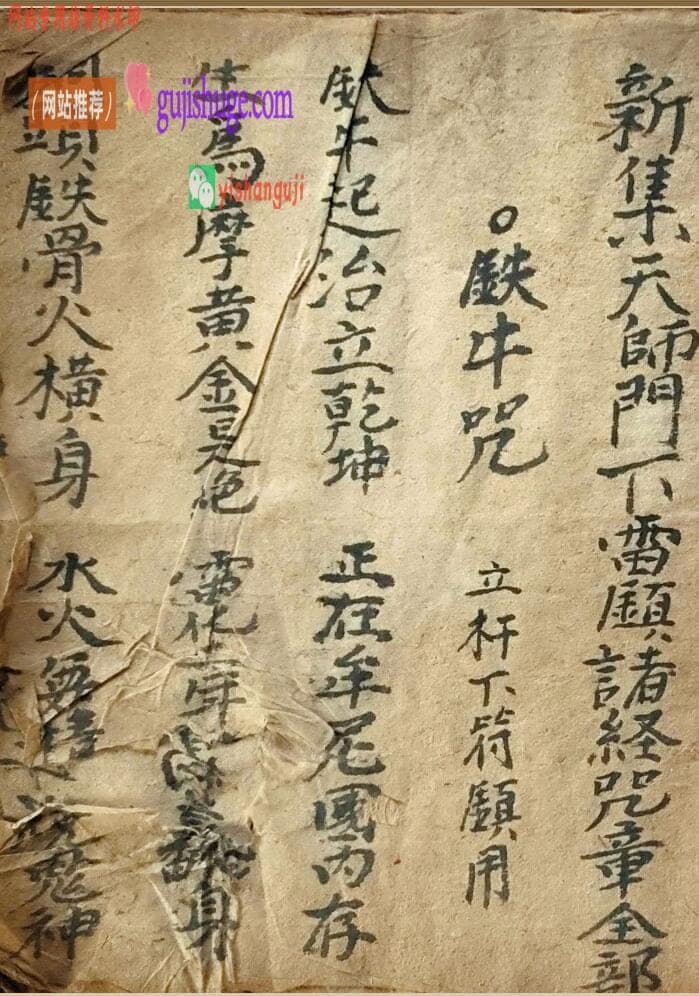 新集天師門下雷願諸経咒章全部
○鉄牛咒 立杆下符願用
鉄牛起治立乾坤 正在牟尼国内存
為摩黄金是绝 電化 身
頭鉄骨火横身 水火無情 鬼神
(网站推荐)
gujishuge.com
yishanguji